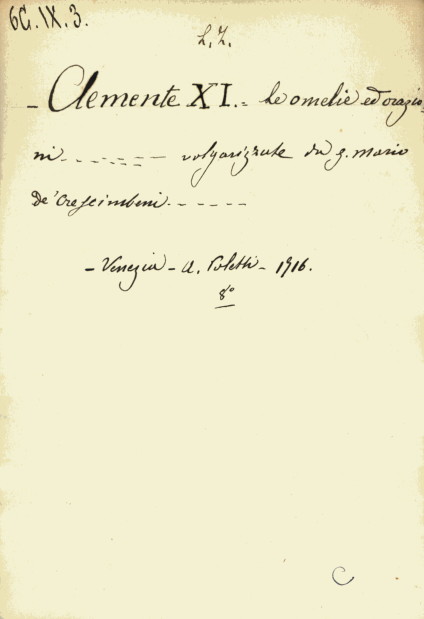 6G.IX.3.
L.Z.
- Clemente XI. = Le omelie ed orazio
ni - - - - = = - - volgarizzate da G. Mario
De' Crescimbeni - - - - -
- Venezia - A. Poletti - 1716.
8°
C